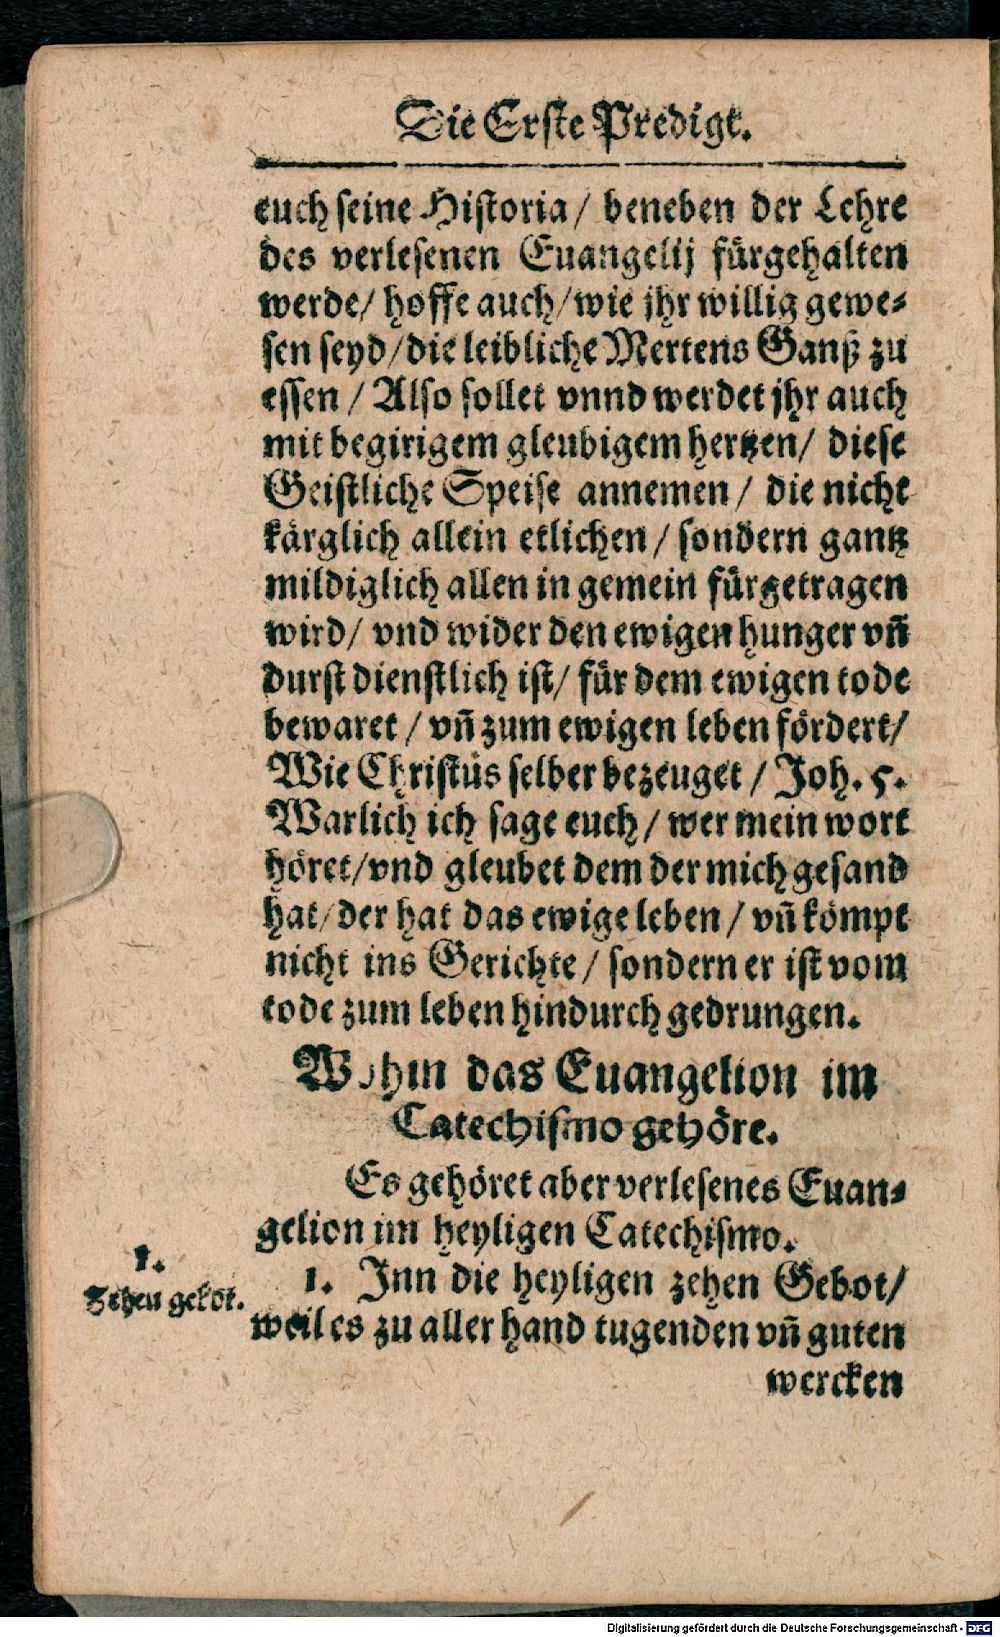 Die Erste Predigt.
euch seine Historia / beneben der Lehre
des verlesenen Euangelij fürgehalten
werde / hoffe auch / wie jhr willig gewe-
sen seyd / die leibliche Mertens Ganß zu
essen / Also sollet vnnd werdet jhr auch
mit begirigem gleubigem hertzen / diese
Geistliche Speise annemen / die nicht
kärglich allein etlichen / sondern gantz
mildiglich allen in gemein fürgetragen
wird / vnd wider den ewigen hunger vñ
durst dienstlich ist / für dem ewigen tode
bewaret / vñ zum ewigen leben fördert /
Wie Christus selber bezeuget / Joh. 5.
Warlich ich sage euch / wer mein wort
höret / vnd gleubet dem der mich gesand
hat / der hat das ewige leben / vñ kömpt
nicht ins Gerichte / sondern er ist vom
tode zum leben hindurch gedrungen.
Wohin das Euangelion im
Catechismo gehöre.
Es gehöret aber verlesenes Euan-
gelion im heyligen Catechismo.
1.
Zehen gebot.
1. Inn die heyligen zehen Gebot /
weil es zu aller hand tugenden vñ guten
wercken
Digitalisierung gefördert durch die Deutsche Forschungsgemeinschaft - DFG